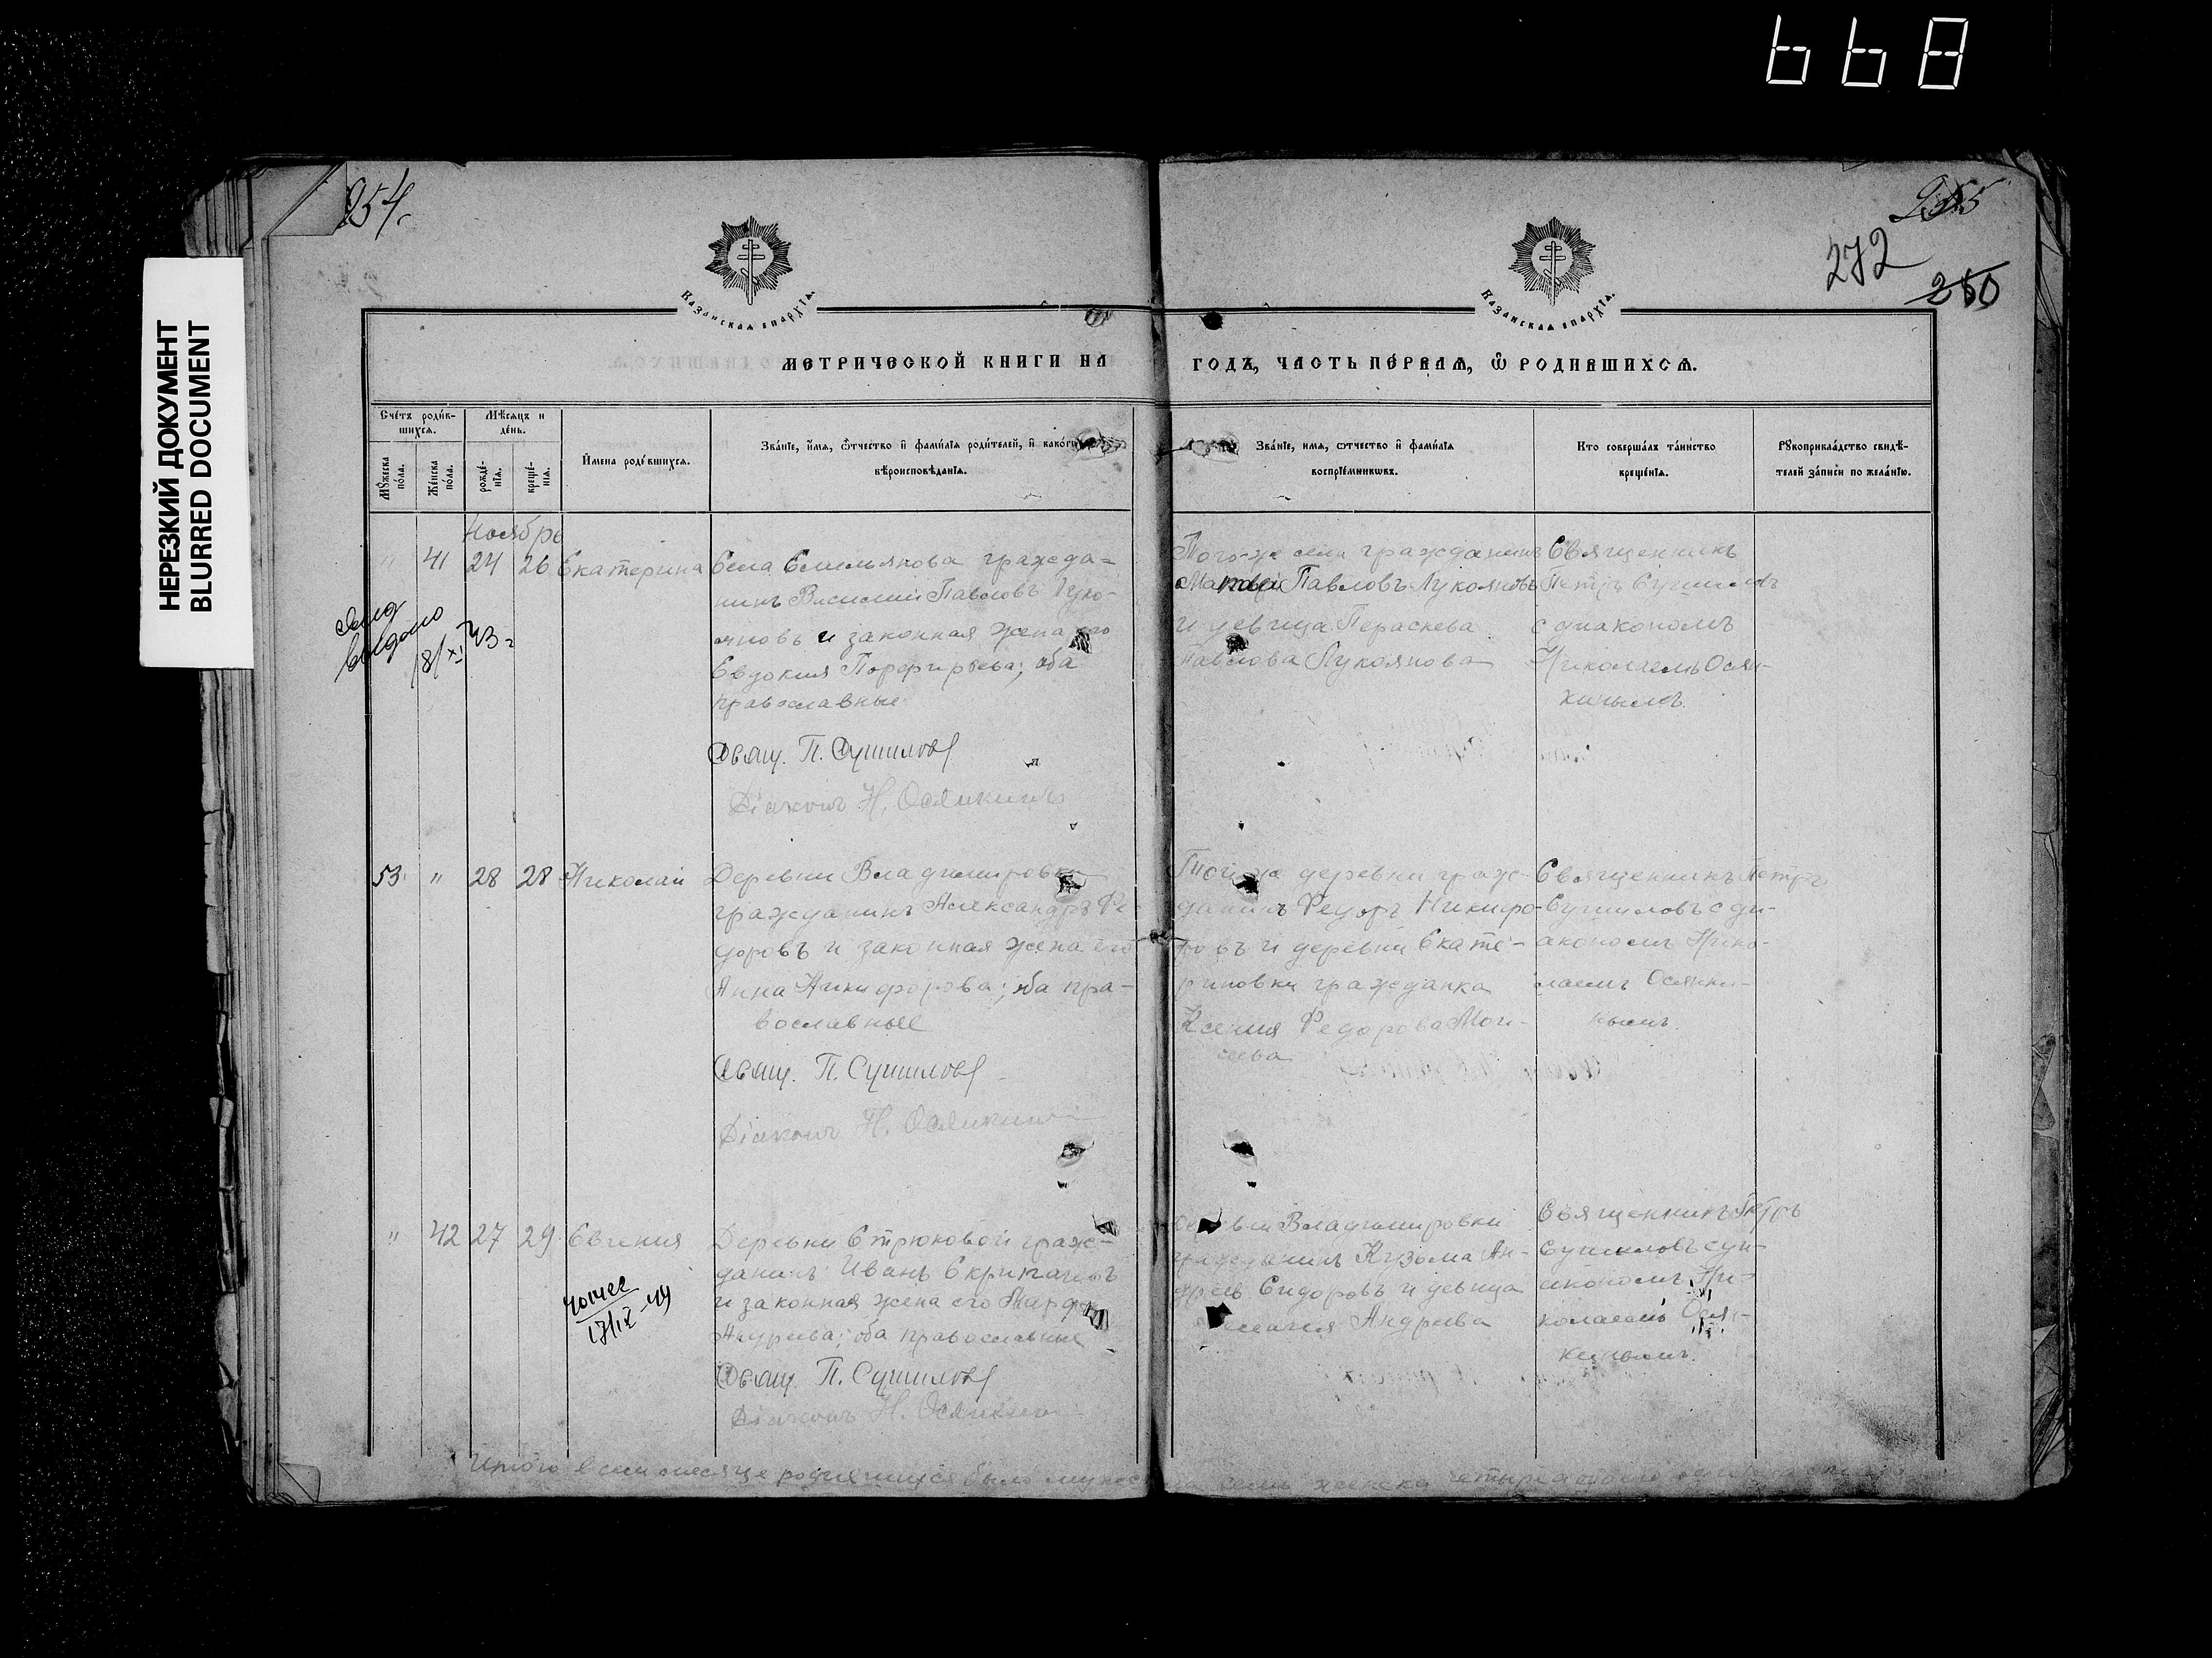 668
НЕРЕЗКИЙ ДОКУМЕНТ
BLURRED DOCUMENT
254.
255
272
260
Казанская епархїа.
Казанская епархїа.
МЕТРИЧЕСКОЙ КНИГИ НА
ГОДЪ, ЧАСТЬ ПЕРВАѦ, Ѿ РОДИВШИХСѦ.
Счетъ родив-
шихся.
Мѣсяцъ и
день.
Мꙋжеска
пола.
Женска
пола.
рожде-
нїя.
креще-
нїя.
Имена родившихся.
Званїе, имя, ѿчество и фамилїя родителей, и какогѡ
вѣроисповѣданїя.
Званїе, имя, ѿчество и фамилїя
воспрїемникѡвъ.
Кто совершалъ таинство
крещенїя.
Рꙋкоприкладство свидѣ-
телей записи по желанїю.
Ноябрь
" 41 24 26 Екатерина
Села Емельянова гражда=
нинъ Василий Павловъ Луко-
яновъ и законная жена его
Евдокия Порфирьева; оба
православные
Свящ. П. Сушиловъ
Дiаконъ Н. Осянкинъ
Того-же села гражданинъ
Матвей Павловъ Лукояновъ
и девица Параскева
Павлова Лукоянова
Священникъ
Петръ Сушиловъ
с диакономъ
Николаемъ Осян-
кинымъ.
выдано
18/XI 43 г
53. " 28 28 Николай
Деревни Владимировки
гражданинъ Александръ Фе-
доровъ и законная жена его
Анна Никифорова; оба пра-
вославные
Свящ. П. Сушиловъ
Дiаконъ Н. Осянкинъ
Той-же деревни граж-
данинъ Федоръ Никифо-
ровъ и деревни Екате-
риновки гражданка
Ксения Федорова Мои-
сеева
Священникъ Петръ
Сушиловъ с ди-
акономъ Нико-
лаемъ Осянки-
нымъ.
" 42 27 29 Евгения
17/IX-49
Деревни Стрюковой граж-
данинъ Иванъ
и законная жена его Марфа
Андреева; оба православные
Свящ. П. Сушиловъ
Дiаконъ Н. Осянкинъ
Деревни Владимировки
гражданинъ Кузьма Ан-
дреев Сидоровъ и девица
Андреева
Священникъ Петръ
Сушиловъ с ди-
акономъ Ни-
колаемъ Осян-
кинымъ.
Итого в сем месяце родившихся было мужес
семь женска четыре обоего